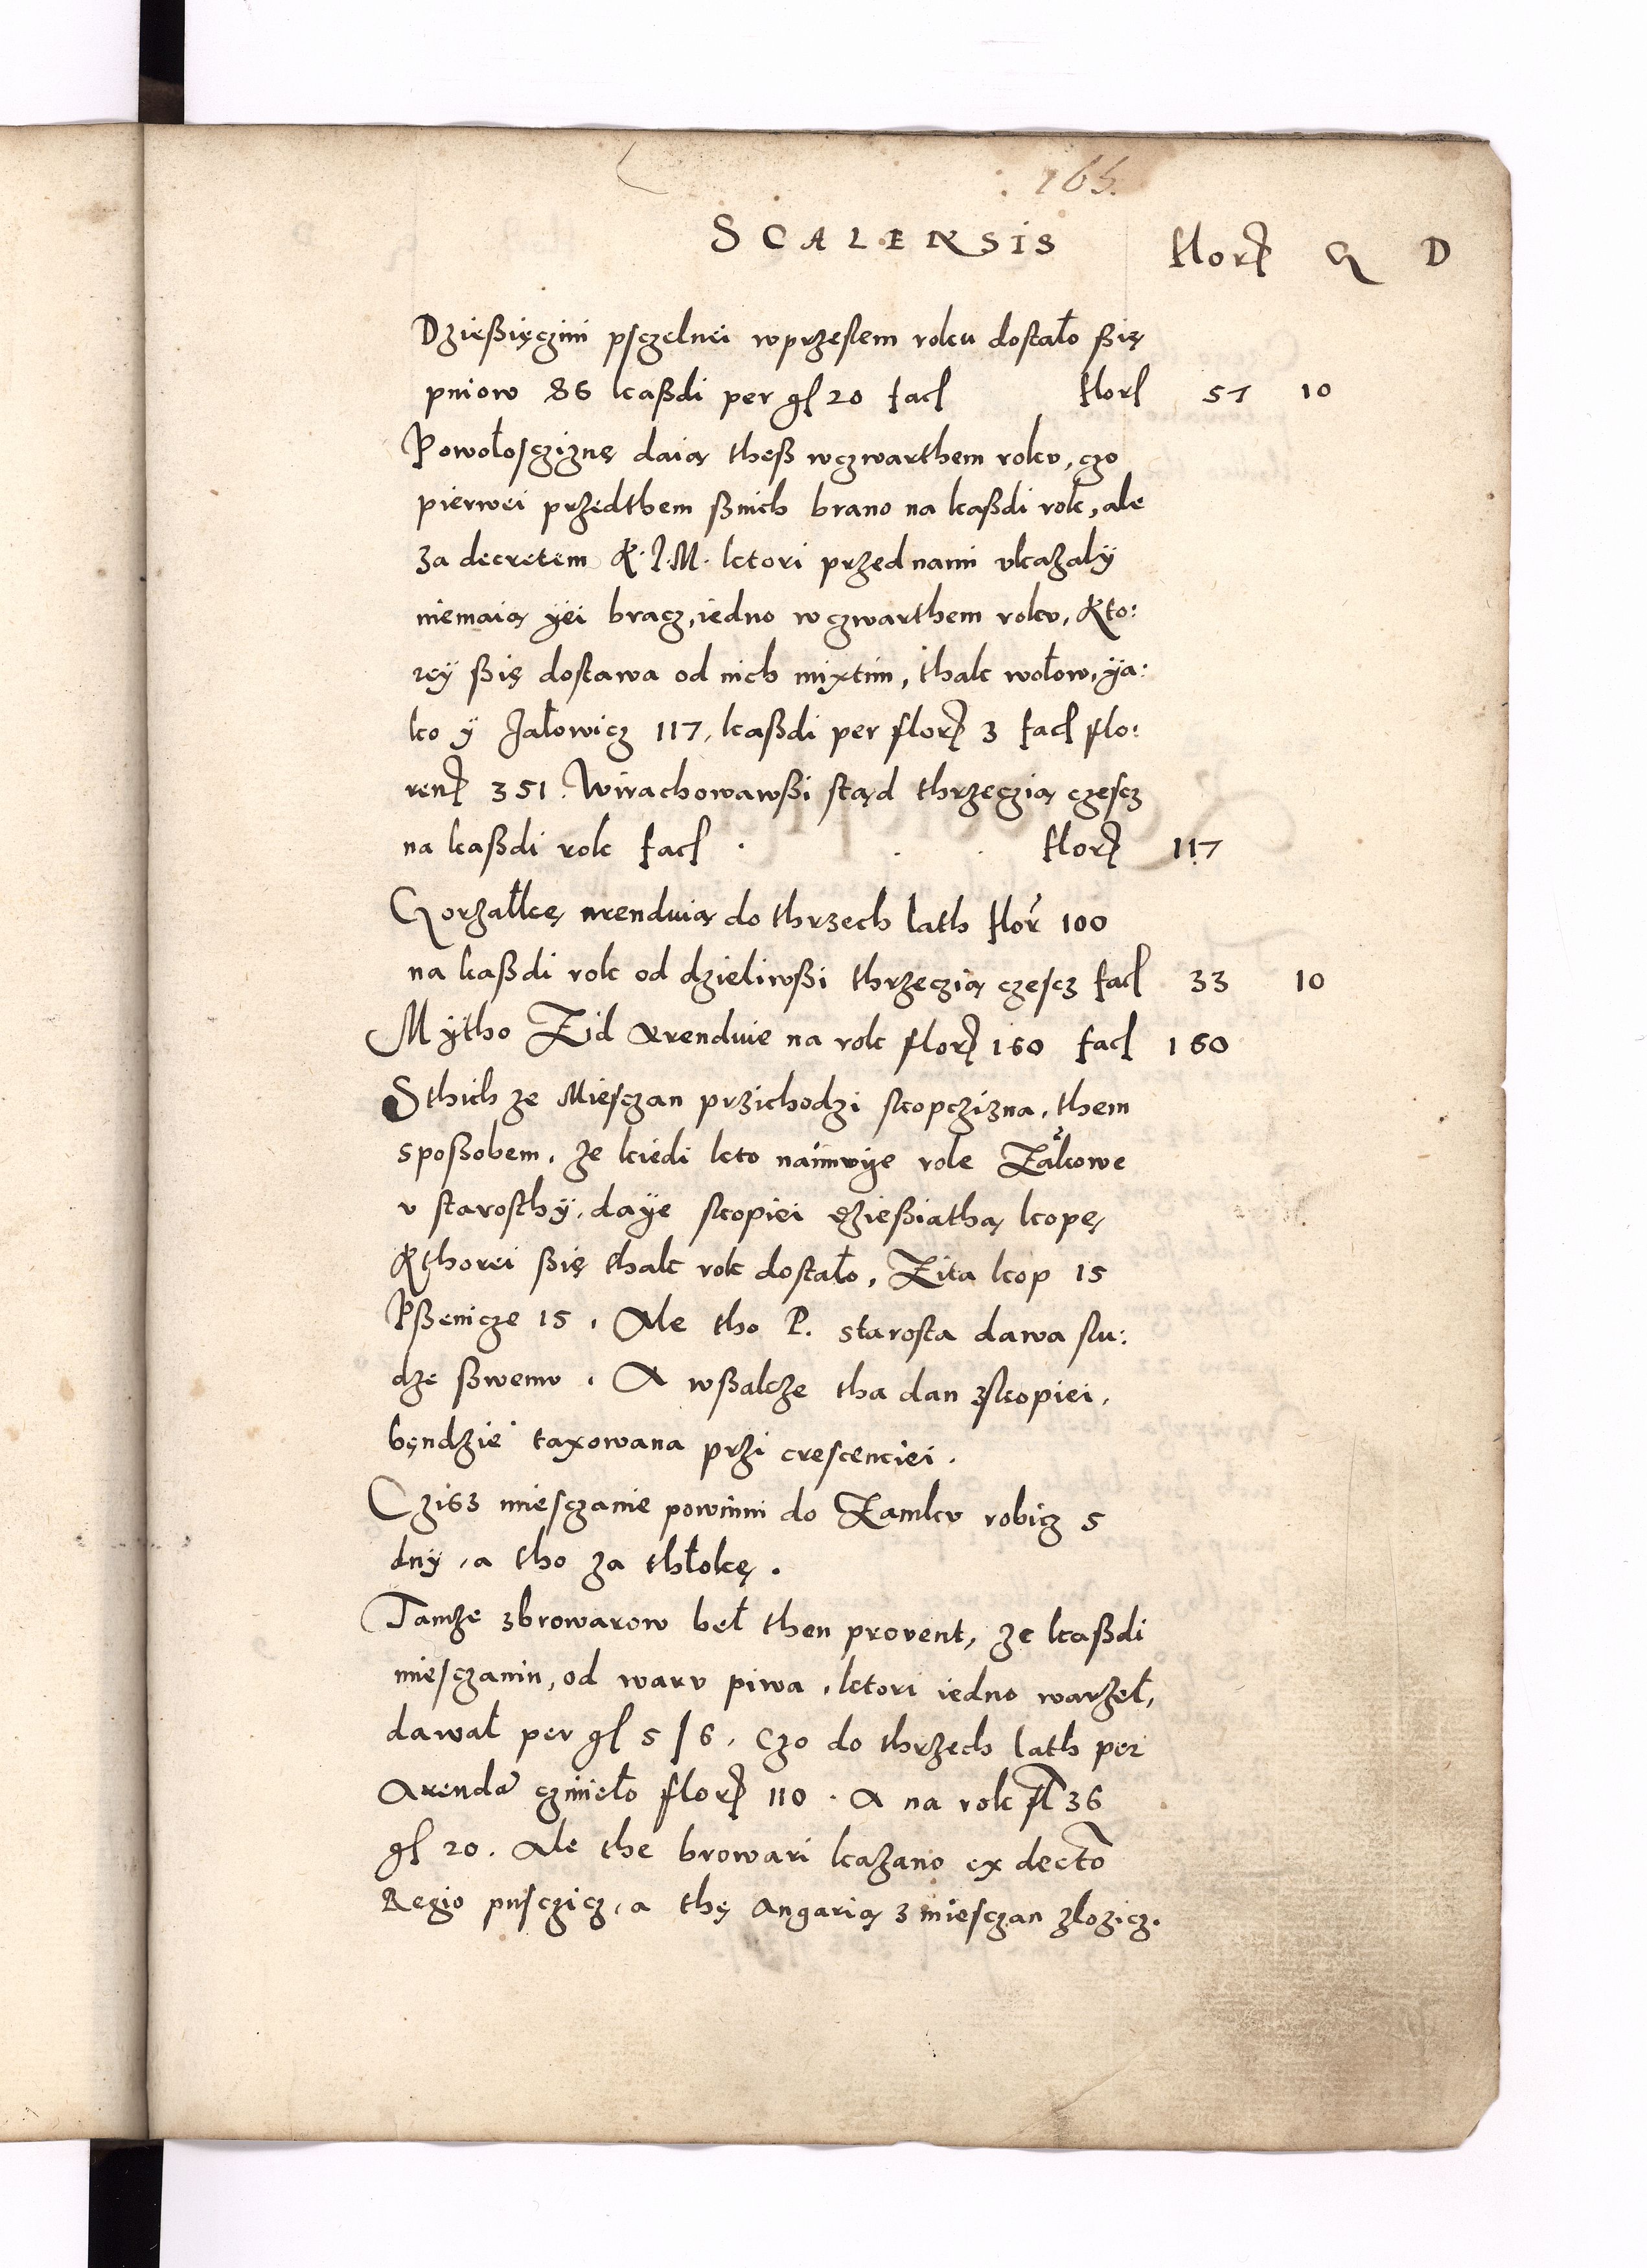 165.
SCALENSIS florꝭ G D
Dzießięczini psczelnei wprzeslem roku dostało ßię
pniow 86 kaßdi per gſ 20 facſ florſ 57 10
Powołoscziznę daią theß wczwarthem rokv, czo
pierwei przedthem ßnich brano na kaßdi rok, ale
za decretem K. J. M. ktori przed nami vkazalÿ
niemaią ÿei bracz, iedno w czwarthem rokv, Kto:
reÿ ßię dostawa od nich mixtim, thak wołow, ÿa:
ko ÿ Jałowicz 117, kaßdi per florꝭ 3 facſ flo:
renꝭ 351. Wirachowawßi stąd thrzeczią czescz
na kaßdi rok facſ . florꝭ 117
Gorzałkę arenduią do thrzech lath flor 100
na kaßdi rok od dzieliwßi thrzeczią czescz facſ 33 10
Mÿtho Zid Arenduie na rok florꝭ 160 facſ 160
Sthich ze Miesczan przichodzi skopczizna, them
sposßobem, ze kiedi kto naimvÿe role Zākowe
v starosthÿ, daÿe skopiei dzießiathą kopę
Kthorei ßię thak rok dostało, Zita kop 15
Pßenicze 15, Ale tho P. starosta dawa słu:
dze ßwemv. A wßakze tha dan zskopiei,
bęndzie taxowana przi crescenciei.
Czisz miesczanie powinni do Zamkv robicz 5
dnÿ, a tho za thłokę.
Tamze zbrowarow beł then provent, ze kaßdi
miesczanin, od warv piwa, ktori iedno warzeł,
dawał per gſ 5 / 6, Czo do thrzech lath per
Arendā czinieło florꝭ 110. A na rok fl 36
gſ 20. Ale the browari kazano ex decto
Regio pusczicz, a thę Angarią z miesczan zlozicz.